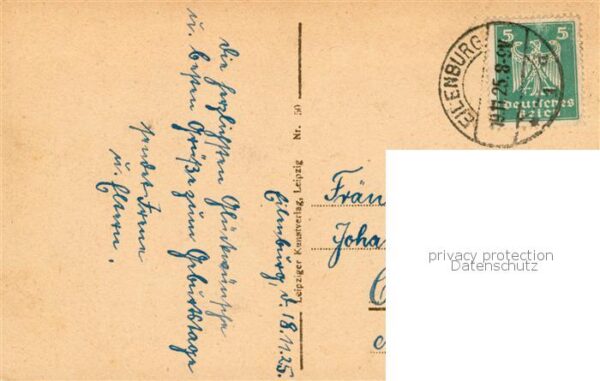 Eilenburg, d. 18.11.25.
Die herzlichsten Glückwünsche
u. besten Grüße zum Geburtstage
sendet Irene
u. Eltern.
Leipziger Kunstverlag, Leipzig Nr. 50
EILENBURG
19.11.25.8-9V.
5 5
deutsches
Reich
Frän
Joha
privacy protection
Datenschutz